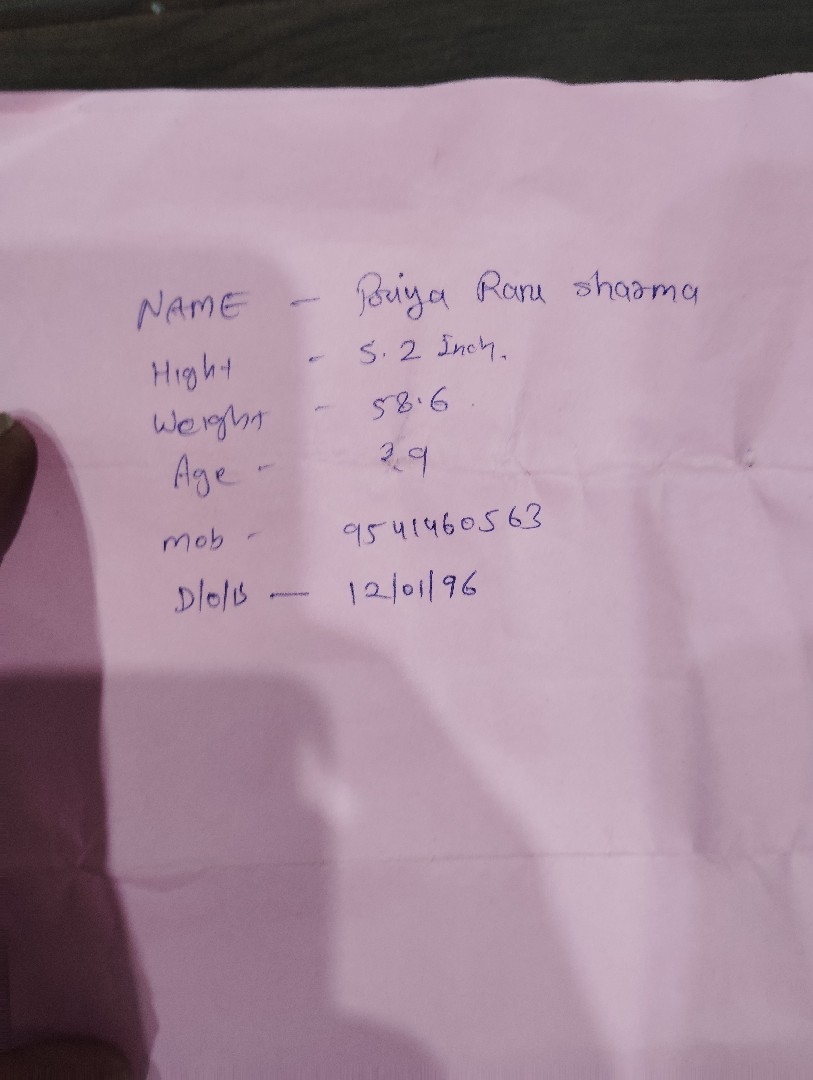 NAME - Priya Rani sharma
Hight - 5.2 Inch.
Weight - 58.6
Age - 29
mob - 9541460563
D/O/B — 12/01/96